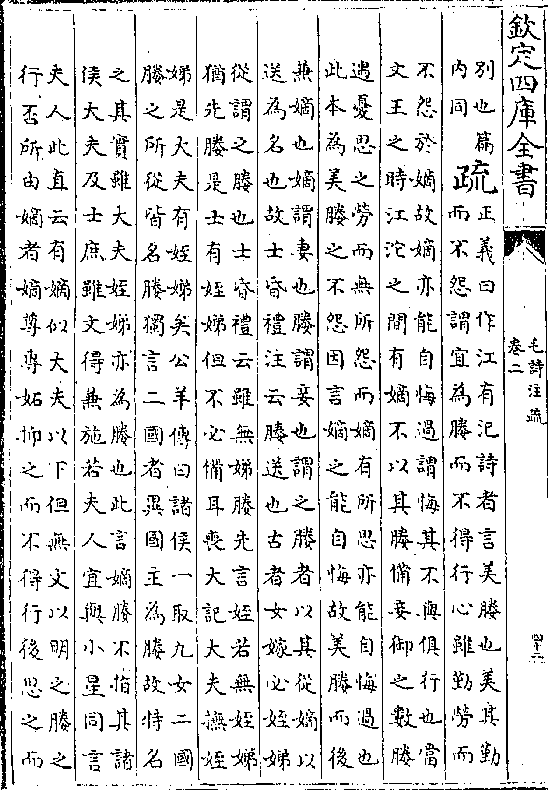 欽定四庫全書
毛詩注疏
卷二
四十二
别也篇
内同
疏
正義曰作江有汜詩者言美媵也美其勤
而不怨謂宜為媵而不得行心雖勤勞而
不怨於嫡故嫡亦能自悔過謂悔其不與俱行也當
文王之時江沱之間有嫡不以其媵備妾御之數媵
遇憂思之勞而無所怨而嫡有所思亦能自悔過也
此本為美媵之不怨因言嫡之能自悔故美媵而後
兼嫡也嫡謂妻也媵謂妾也謂之媵者以其從嫡以
送為名也故士昏禮注云媵送也古者女嫁必姪娣
從謂之媵也士昏禮云雖無娣媵先言姪若無姪娣
猶先媵是士有姪娣但不必備耳喪大記大夫撫姪
娣是大夫有姪娣矣公羊傳曰諸侯一取九女二國
媵之所從皆名媵獨言二國者異國主為媵故特名
之其實雖大夫姪娣亦為媵也此言嫡媵不指其諸
侯大夫及士庶雖文得兼施若夫人宜與小星同言
夫人此直云有嫡似大夫以下但無文以明之媵之
行否所由嫡者嫡尊專妬抑之而不得行後思之而